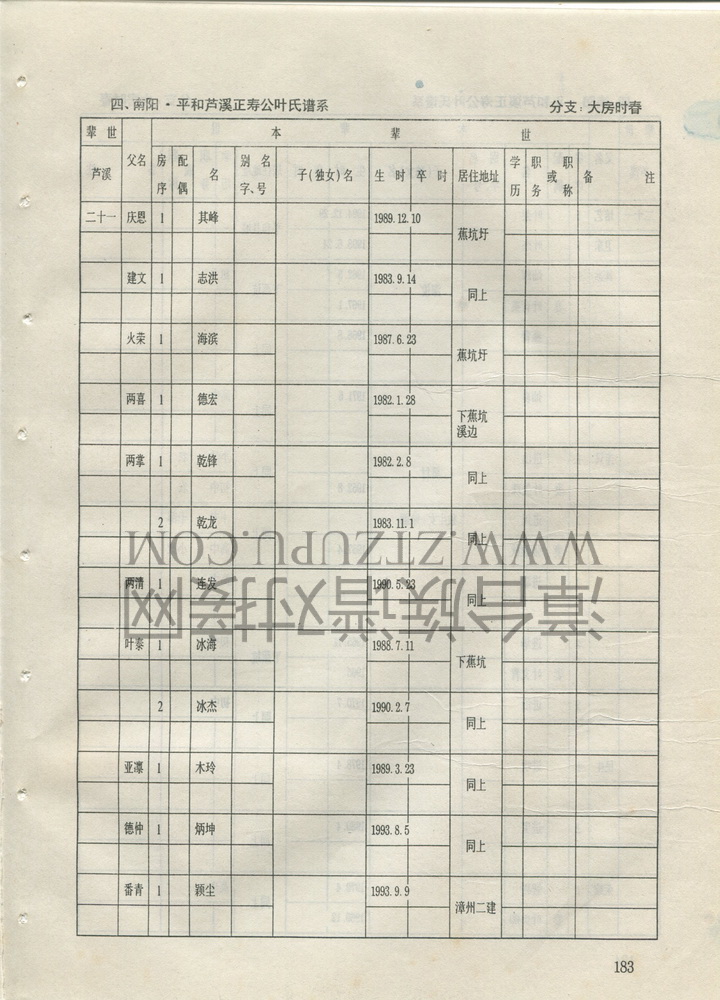 四、南阳·平和芦溪正寿公叶氏谱系 分支：大房时春
辈世 本 辈 世
芦溪 父名 房序 配偶 名 别名字、号 子(独女)名 生时 卒时 居住地址 学历 职务或职称 备注
二十一 庆恩 1 其峰 1989.12.10 蕉坑圩
建文 1 志洪 1983.9.14 同上
火荣 1 海滨 1987.6.23 蕉坑圩
两喜 1 德宏 1982.1.28 下蕉坑溪边
两掌 1 乾锋 1982.2.8 同上
2 乾龙 1983.11.1 同上
两清 1 连发 1990.5.23 同上
叶泰 1 冰海 1988.7.11 下蕉坑
2 冰杰 1990.2.7 同上
亚凛 1 木玲 1989.3.23 同上
德仲 1 炳坤 1993.8.5 同上
番青 1 颖尘 1993.9.9 漳州二建
183
WWW.ZTZUPU.COM
漳台族谱对接网